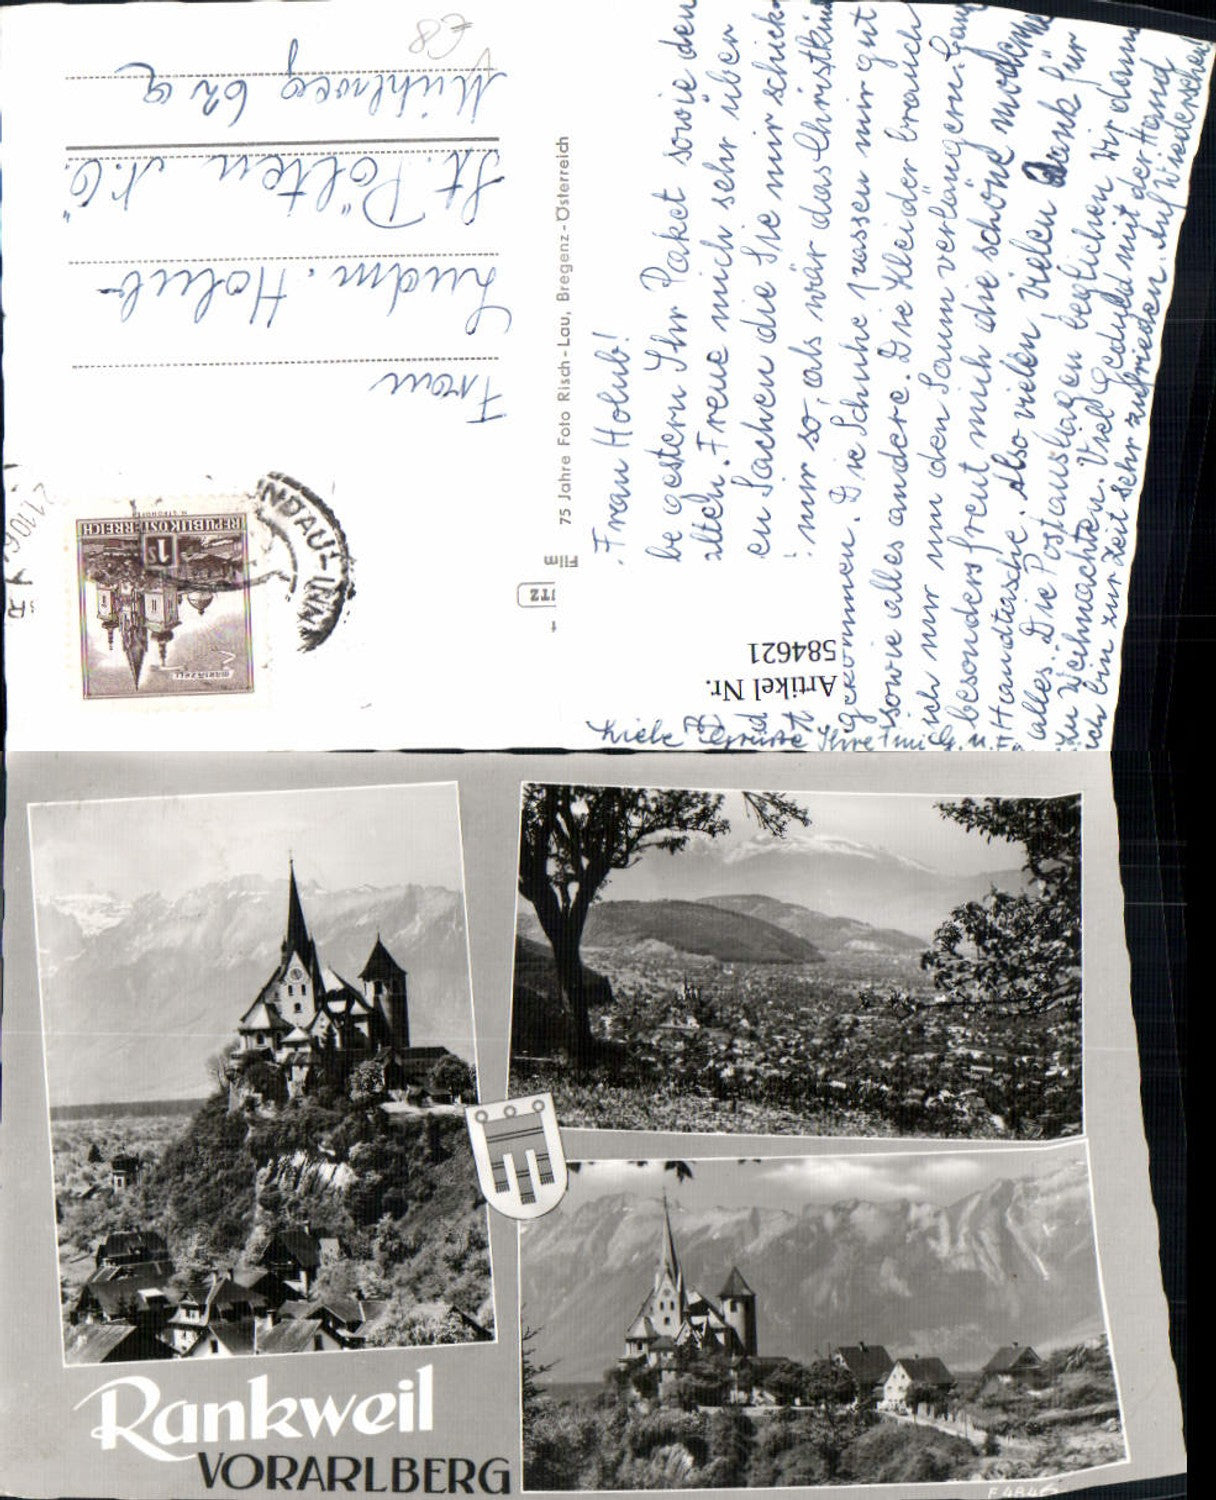 Frau Holub!
be gestern Ihr Paket sowie den
alten. Freue mich sehr über
en Sachen die Sie mir schick-
mir so, als wär das Christkind
gekommen. Die Schuhe passen mir gut
sowie alles andere. Die Kleider brauch
ich nur um den Saum verlängern. Ganz
besonders freut mich die schöne moderne
Handtasche. Also vielen, vielen Dank für
alles. Die Postauslagen begleichen wir dann
zu Weihnachten. Viel Geduld mit der Hand
ich bin zur Zeit sehr zufrieden. Auf Wiedersehen
Liebe Grüsse Ihre
75 Jahre Foto Risch-Lau, Bregenz-Österreich
Frau
Ludm. Holub
St. Pölten N.Ö.
Mühlweg 62a
€8
REPUBLIK ÖSTERREICH
1s
MARIAZELL
Artikel Nr.
584621
Rankweil
VORARLBERG